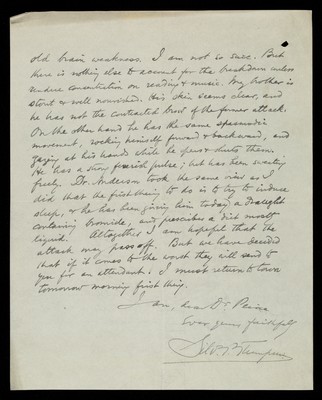 old brain weakness. I am not so sure. But
there is nothing else to account for the breakdown unless
undue concentration on reading & music. My brother is
stout & well nourished. His skin seems clear, and
he has not the contracted brow of the former attack.
On the other hand he has the same spasmodic
movement, rocking himself forward & backward, and
gazing at his hands while he opens & shuts them.
He has a slow pulse; but has been sweating
freely. Dr. Anderson took the same view as I
did that the first thing to do is to try to induce
sleep; & he has been giving him today a draught
containing bromide, and prescribes a diet mostly
liquid. Altogether I am hopeful that the
attack may pass off. But we have decided
that if it comes to the worst they will send to
you for an attendant. I must return to town
tomorrow morning first thing.
I am, dear Dr.
Ever yours faithfully
Silv. P. Thompson